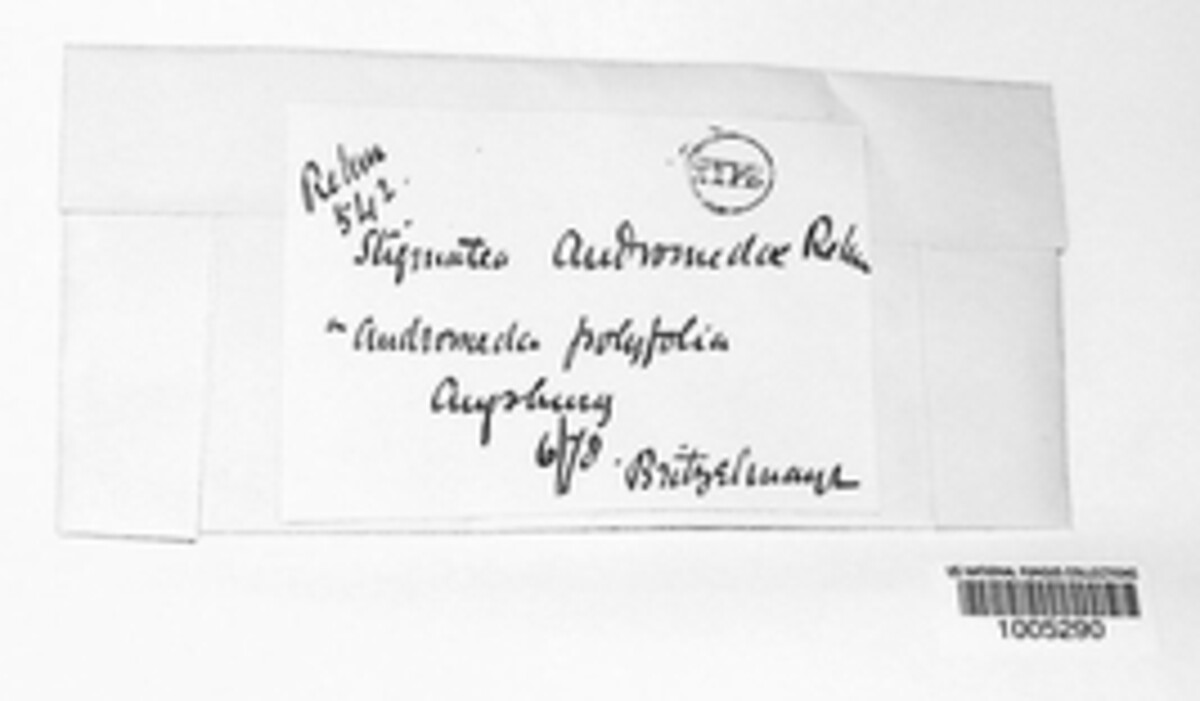 Rehm
542.
Stigmatea Andromedae Rehm
Andromeda polyfolia
Augsburg
6/78. Britzelmayr
US NATIONAL FUNGUS COLLECTIONS
1005290